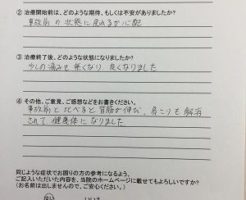 ② 治療開始前は、どのような期待、もしくは不安がありましたか?
事故前の状態に戻るか心配
③ 治療終了後、どのような状態になりましたか?
少しの痛みも無くなり 良くなりました
④ その他、ご意見、ご感想などをお書きください。
事故前と比べると背筋が伸び、肩こりも解消
されて健康体になりました
同じような症状でお困りの方の参考になるよう、
ご記入いただいた内容を、当院のホームページに載せてもよろしいですか?
(お名前は出しませんので、ご安心ください。)
はい
いいえ